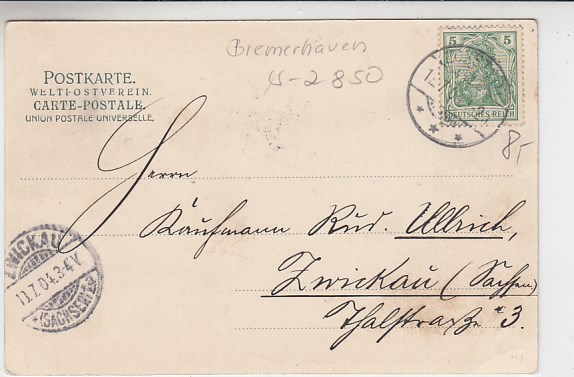 Bremerhaven
U-2850
POSTKARTE.
WELTPOSTVEREIN.
CARTE-POSTALE.
UNION POSTALE UNIVERSELLE.
5 5
DEUTSCHES REICH
8,-
Herrn
Kaufmann Rud. Ullrich,
Zwickau (Sachsen)
Thalstraße 3.
ZWICKAU
13.7.04.3-4V.
(SACHSEN)